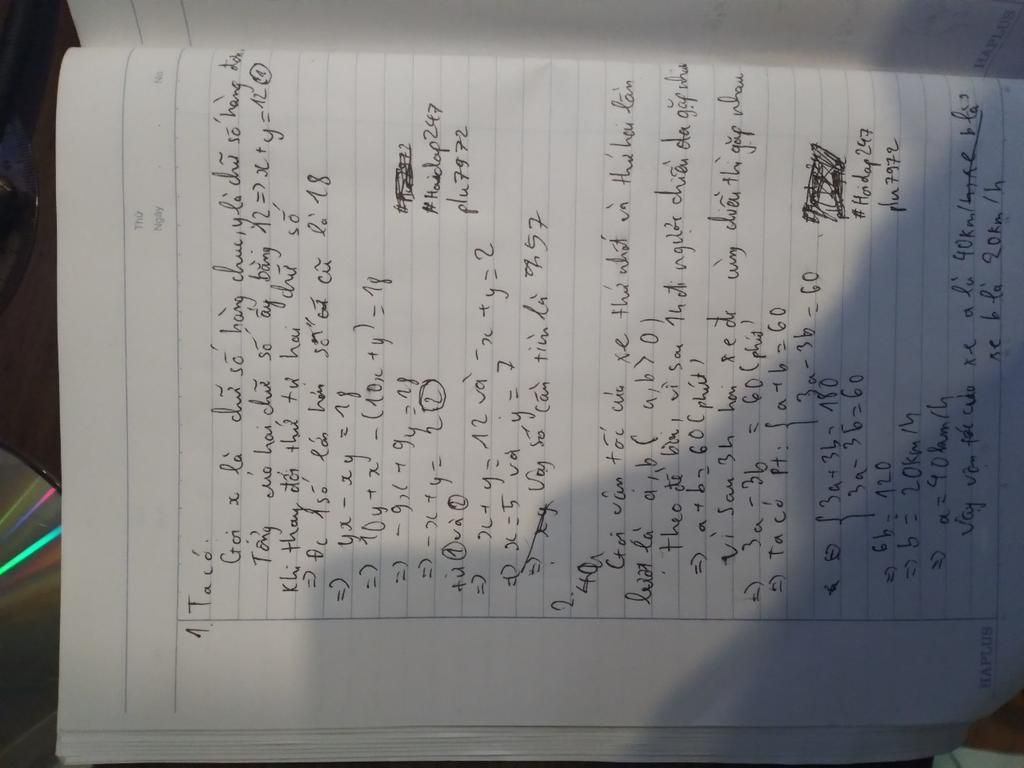 Thứ
Ngày
No.
1. Ta có:
Gọi x là chữ số hàng chục, y là chữ số hàng đvị.
Tổng của hai chữ số ấy bằng 12 => x + y = 12 (1)
Khi thay đổi thứ tự hai chữ số
=> Đc 1 số lớn hơn số cũ là 18
=> yx - xy = 18
=> 10y + x - (10x + y) = 18
=> -9x + 9y = 18
=> -x + y = 2 (2)
#Hoidap247
phu7972
từ (1) và (2)
=> x + y = 12 và -x + y = 2
=> x = 5 và y = 7
=> Vậy số cần tìm là 57
2. 4a,
Gọi vận tốc của xe thứ nhất và thứ hai lần
lượt là a, b ( a, b > 0)
Theo đề bài, vì sau 1h đi ngược chiều đã gặp nhau
=> a + b = 60 (phút)
Vì sau 3h hai xe đi cùng chiều thì gặp nhau
=> 3a - 3b = 60 (phút)
=> Ta có PT: { a + b = 60
3a - 3b = 60
<=> { 3a + 3b = 180
3a - 3b = 60
#Hoidap247
phu7972
=> 6b = 120
=> b = 20km/h
=> a = 40km/h
Vậy vận tốc của xe a là 40km/h
xe b là 20km/h
HAPLUS
HAPLUS